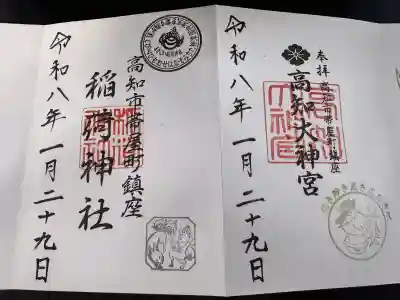 奉拝
高知市帯屋町鎮座
高知大神宮
令和八年一月二十九日
高知市帯屋町鎮座
稲荷神社
令和八年一月二十九日